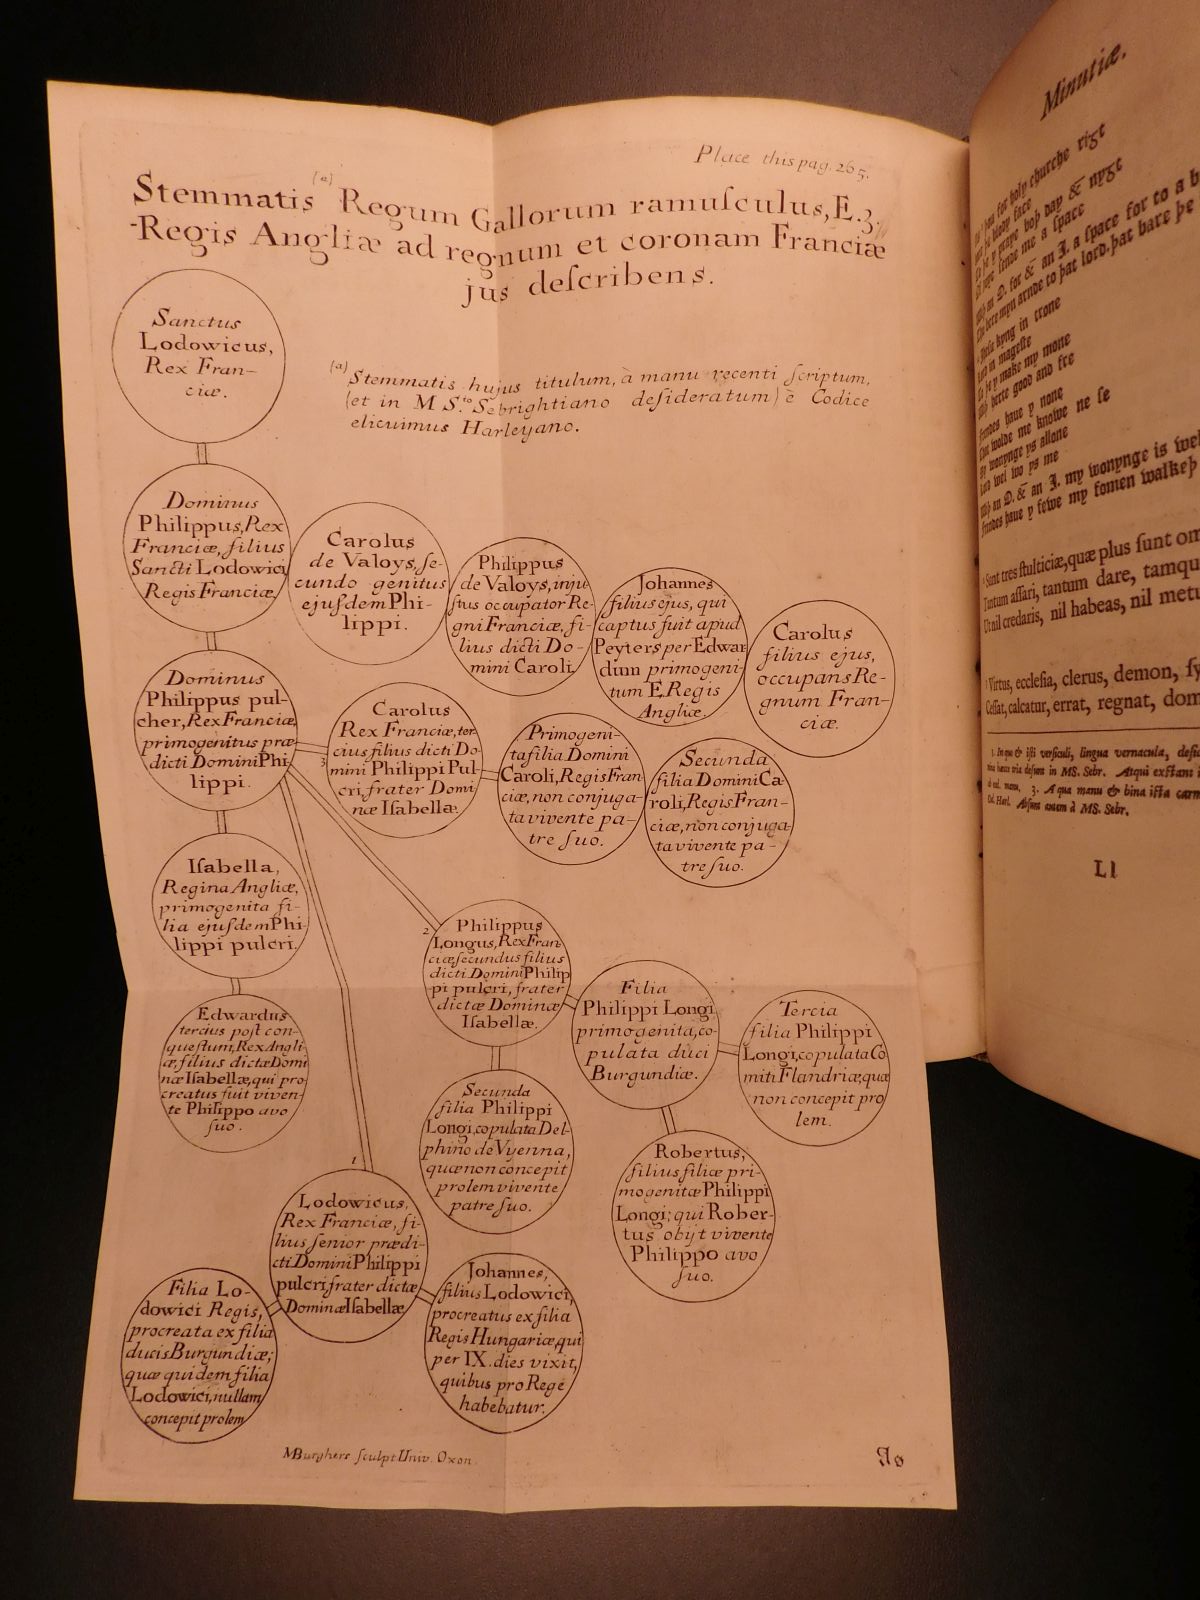 Place this pag. 265.
Stemmatis (a) Regum Gallorum ramuſculus, E. 3.
-Regis Angliæ ad regnum et coronam Franciæ
jus deſcribens.
(a) Stemmatis hujus titulum, à manu recenti ſcriptum,
(et in M S.to Sebrightiano deſideratum) è Codice
elicuimus Harleyano.
Sanctus
Lodowicus,
Rex Fran-
ciæ.
Dominus
Philippus, Rex
Franciæ, filius
Sancti Lodowici
Regis Franciæ.
Carolus
de Valoys, ſe-
cundo genitus
ejuſdem Phi-
lippi.
Philippus
de Valoys, inju
ſtus occupator Re-
gni Franciæ, fi-
lius dicti Do-
mini Caroli.
Johannes
filius ejus, qui
captus fuit apud
Peyters per Edwar
dum primogeni-
tum E. Regis
Angliæ.
Carolus
filius ejus,
occupans Re-
gnum Fran-
ciæ.
Dominus
Philippus pul-
cher, Rex Franciæ,
primogenitus præ
dicti Domini Phi
lippi.
3
Carolus
Rex Franciæ, ter-
cius filius dicti Do-
mini Philippi Pul-
cri, frater Domi-
næ Iſabellæ.
Primogeni-
ta filia Domini
Caroli, Regis Fran
ciæ, non conjuga-
ta vivente pa-
tre ſuo.
Secunda
filia Domini Ca
roli, Regis Fran-
ciæ, non conjuga
ta vivente pa-
tre ſuo.
Iſabella,
Regina Angliæ,
primogenita fi-
lia ejuſdem Phi-
lippi pulcri.
Edwardus
tercius poſt con-
queſtum, Rex Angli
æ, filius dictæ Domi
næ Iſabellæ, qui pro
creatus fuit viven-
te Philippo avo
ſuo.
2
Philippus
Longus, Rex Fran
ciæ ſecundus filius
dicti Domini Philip
pi pulcri, frater
dictæ Dominæ
Iſabellæ.
Filia
Philippi Longi
primogenita, co-
pulata duci
Burgundiæ.
Tercia
filia Philippi
Longi, copulata Co
miti Flandriæ, quæ
non concepit pro
lem.
Secunda
filia Philippi
Longi, copulata Del-
phino de Vyenna,
quæ non concepit
prolem vivente
patre ſuo.
Robertus,
filius filiæ pri-
mogenitæ Philippi
Longi; qui Rober-
tus obijt vivente
Philippo avo
ſuo.
1
Lodowicus,
Rex Franciæ, fi-
lius ſenior prædi-
cti Domini Philippi
pulcri frater dictæ
Dominæ Iſabellæ
Filia Lo-
dowici Regis,
procreata ex filia
ducis Burgundiæ;
quæ quidem filia
Lodowici, nullam
concepit prolem
Johannes,
filius Lodowici,
procreatus ex filia
Regis Hungariæ, qui
per IX. dies vixit,
quibus pro Rege
habebatur.
MBurghers ſculpt Univ. Oxon.
Minutiæ.
for holy churche rigt
bloody face
y praye boþ day & nygt
ſende me a ſpace
an D. for & an J. a ſpace for to a b
bere myn arnde to þat lord, þat bare þe
kyng in trone
in mageſte
y make my mone
herte good and fre
Frendes haue y none
wolde me knowe ne ſe
wonynge ys allone
Lord wel wo ys me
an D. & an J. my wonynge is wel
frendes haue y fewe my fomen walkeþ
Sunt tres ſtulticiæ, quæ plus ſunt om
Tantum aſſari, tantum dare, tamqu
Ut nil credaris, nil habeas, nil metu
Virtus, eccleſia, clerus, demon, ſy
Ceſſat, calcatur, errat, regnat, dom
1. In quo & iſti verſiculi, lingua vernacula, deſi
deſunt in MS. Sebr. Atqui exſtant i
3. A qua manu & bina iſta carm
Cod. Harl. Abſunt autem à MS. Sebr.
Ll